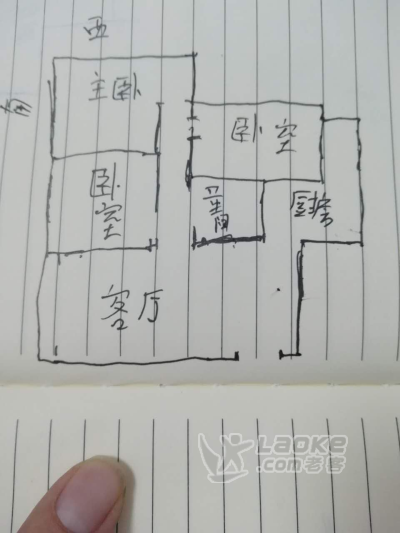 西
南
主卧
卧室
卧室
卫生间
厨房
客厅
LAOKE
.com老客